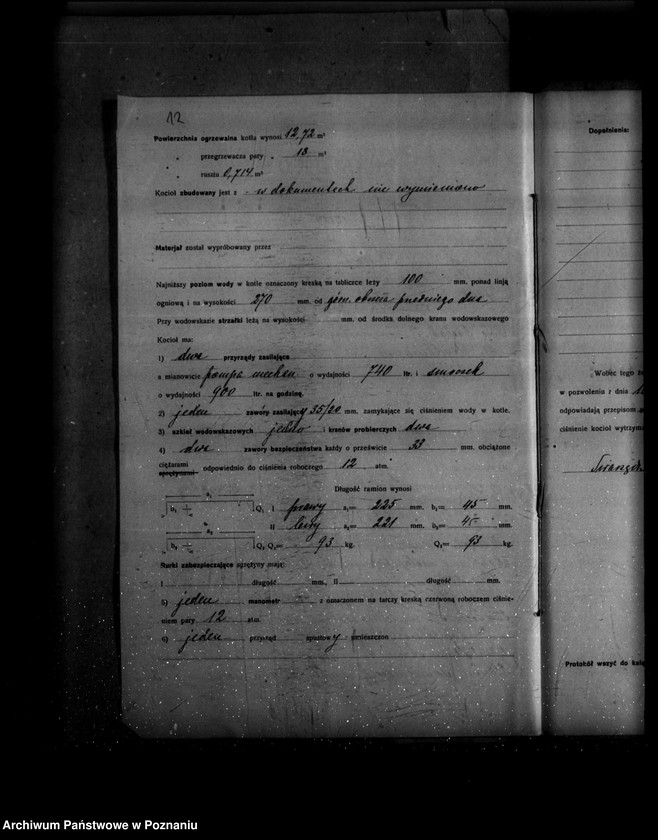 12
Powierzchnia ogrzewalna kotła wynosi 12,72 m²
„ przegrzewacza pary „ 18 m²
„ rusztu 0,714 m²
Kocioł zbudowany jest z - w dokumentach nie wymieniono
Materjał został wypróbowany przez
Najniższy poziom wody w kotle oznaczony kreską na tabliczce leży 100 mm. ponad linją
ogniową i na wysokości 270 mm. od przedniego dna
Przy wodowskazie strzałki leżą na wysokości mm. od środka dolnego kranu wodowskazowego
Kocioł ma:
1) dwa przyrządy zasilające
a mianowicie pompa o wydajności 740 ltr. i smoczek
o wydajności 900 ltr. na godzinę.
2) jeden zawory zasilający 35/20 mm. zamykające się ciśnieniem wody w kotle.
3) szkieł wodowskazowych jedno i kranów probierczych dwa
4) dwa zawory bezpieczeństwa każdy o prześwicie 33 mm. obciążone
ciężarami
sprężynami odpowiednio do ciśnienia roboczego 12 atm.
Długość ramion wynosi
a₁ b₁ Q₁ I prawy a₁= 225 mm. b₁= 45 mm.
a₂ II lewy a₂= 221 mm. b₂= 45 mm.
b₂ Q₂ Q₁= 93 kg. Q₂= 93 kg.
Rurki zabezpieczające sprężyny mają:
I długość mm., II długość mm.
5) jeden manometr z oznaczonem na tarczy kreską czerwoną roboczem ciśnie-
niem pary 12 atm.
6) jeden przyrząd spustowy umieszczon
Dopełnienia:
Wobec tego za
w pozwoleniu z dnia
odpowiadają przepisom
ciśnienie kocioł wytrzym
Protokół wszyć do ksią
Archiwum Państwowe w Poznaniu